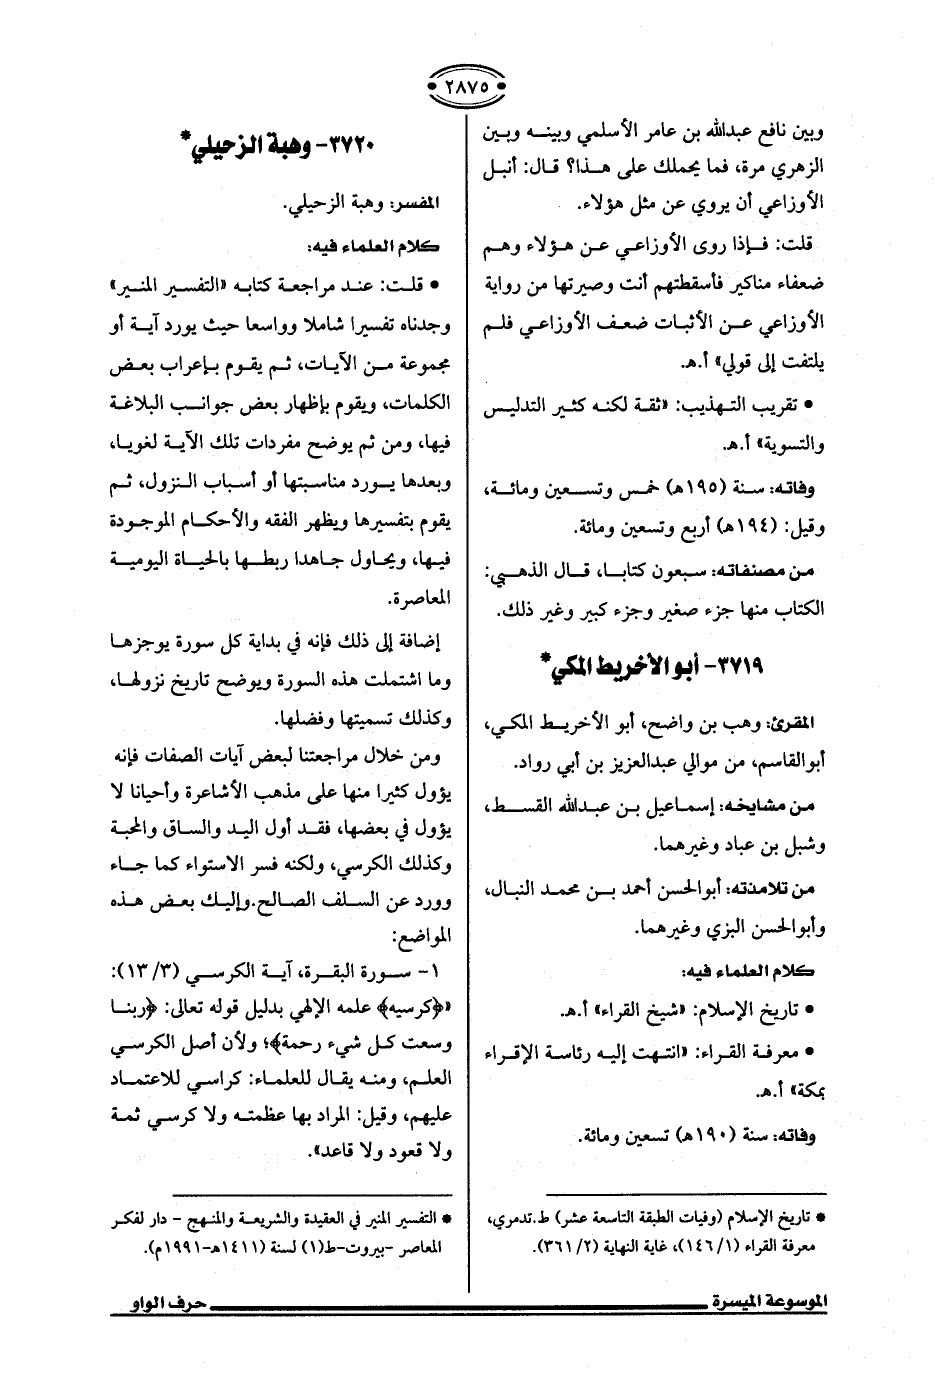 ٢٨٧٥
وبين نافع عبدالله بن عامر الأسلمي وبينه وبين
الزهري مرة، فما يحملك على هذا؟ قال: أنبل
الأوزاعي أن يروي عن مثل هؤلاء.
قلت: فإذا روى الأوزاعي عن هؤلاء وهم
ضعفاء مناكير فأسقطتهم أنت وصيرتها من رواية
الأوزاعي عن الأثبات ضعف الأوزاعي فلم
يلتفت إلى قولي» أ.هـ.
• تقريب التهذيب: «ثقة لكنه كثير التدليس
والتسوية» أ.هـ.
وفاته: سنة (١٩٥هـ) خمس وتسعين ومائة،
وقيل: (١٩٤هـ) أربع وتسعين ومائة.
من مصنفاته: سبعون كتابا، قال الذهبي:
الكتاب منها جزء صغير وجزء كبير وغير ذلك.
٣٧١٩- أبو الأخريط المكي*
المقرئ: وهب بن واضح، أبو الأخريط المكي،
أبوالقاسم، من موالي عبدالعزيز بن أبي رواد.
من مشايخه: إسماعيل بن عبدالله القسط،
وشبل بن عباد وغيرهما.
من تلامذته: أبوالحسن أحمد بن محمد النبال،
وأبوالحسن البزي وغيرهما.
كلام العلماء فيه:
• تاريخ الإسلام: «شيخ القراء» أ.هـ.
• معرفة القراء: «انتهت إليه رئاسة الإقراء
بمكة» أ.هـ.
وفاته: سنة (١٩٠هـ) تسعين ومائة.
* تاريخ الإسلام (وفيات الطبقة التاسعة عشر) ط.تدمري،
معرفة القراء (١/١٤٦)، غاية النهاية (٢/٣٦١).
٣٧٢٠- وهبة الزحيلي*
المفسر: وهبة الزحيلي.
كلام العلماء فيه:
• قلت: عند مراجعة كتابه «التفسير المنير»
وجدناه تفسيرا شاملا وواسعا حيث يورد آية أو
مجموعة من الآيات، ثم يقوم بإعراب بعض
الكلمات، ويقوم بإظهار بعض جوانب البلاغة
فيها، ومن ثم يوضح مفردات تلك الآية لغويا،
وبعدها يورد مناسبتها أو أسباب النزول، ثم
يقوم بتفسيرها ويظهر الفقه والأحكام الموجودة
فيها، ويحاول جاهدا ربطها بالحياة اليومية
المعاصرة.
إضافة إلى ذلك فإنه في بداية كل سورة يوجزها
وما اشتملت هذه السورة ويوضح تاريخ نزولها،
وكذلك تسميتها وفضلها.
ومن خلال مراجعتنا لبعض آيات الصفات فإنه
يؤول كثيرا منها على مذهب الأشاعرة وأحيانا لا
يؤول في بعضها، فقد أول اليد والساق والمحبة
وكذلك الكرسي، ولكنه فسر الاستواء كما جاء
وورد عن السلف الصالح.وإليك بعض هذه
المواضع:
١- سورة البقرة، آية الكرسي (٣/١٣):
«﴿كرسيه﴾ علمه الإلهي بدليل قوله تعالى: ﴿ربنا
وسعت كل شيء رحمة﴾؛ ولأن أصل الكرسي
العلم، ومنه يقال للعلماء: كراسي للاعتماد
عليهم، وقيل: المراد بها عظمته ولا كرسي ثمة
ولا قعود ولا قاعد».
* التفسير المنير في العقيدة والشريعة والمنهج - دار لفكر
المعاصر -بيروت-ط(١) لسنة (١٤١١هـ-١٩٩١م).
الموسوعة الميسرة
حرف الواو